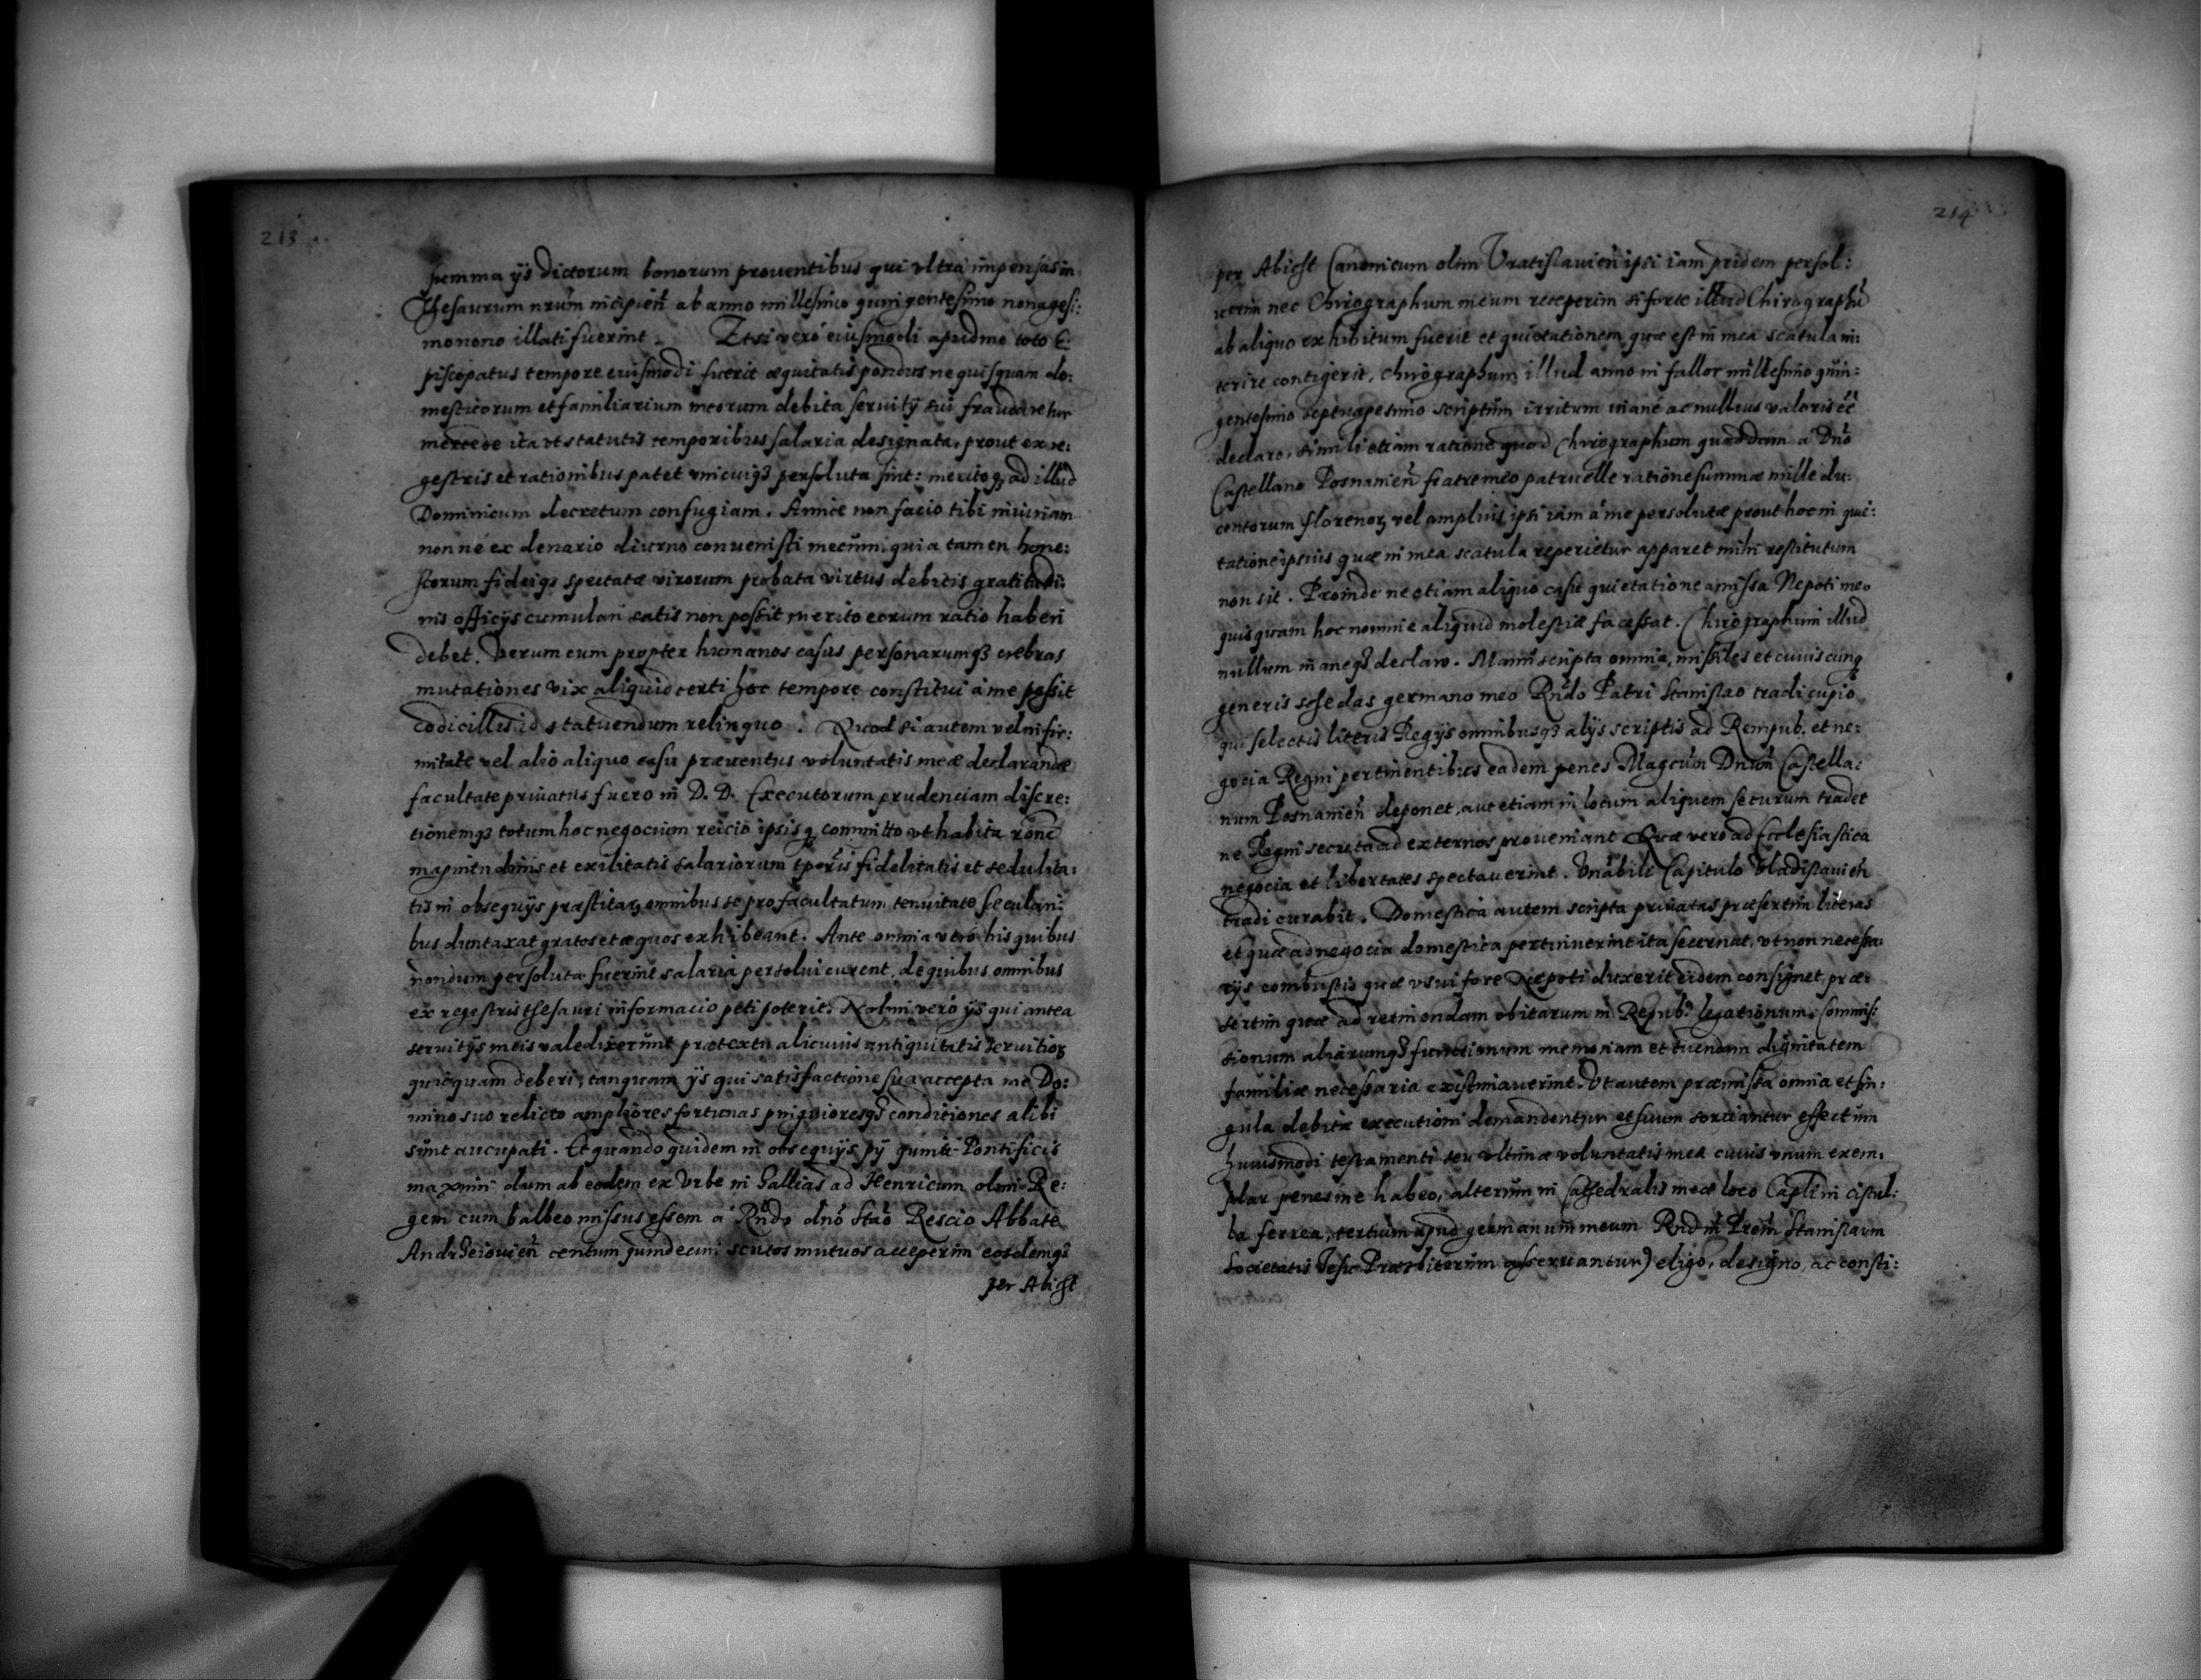 213
summa ijs dictorum bonorum prouentibus qui vltra impensas in
Thesaurum nrum incipien ab anno millesimo quingentesimo nonagesi:
monono illati fuerint. Etsi vero eiusmodi apud me toto E:
piscopatus tempore eiusmodi fuerit æquitatis pondus ne quisquam do:
mesticorum et familiarium meorum debita seruitij sui fraudaretur
mercede ita vt statutis temporibus salaria designata, prout ex re:
gestris et rationibus patet vnicuiq3 persoluta sint: meritoq3 ad illud
Dominicum decretum confugiam. Amice non facio tibi iniuriam
nonne ex denario diurno conuenisti mecum, quia tamen hone:
storum fideiq3 spectatæ virorum probata virtus debitis gratitudi:
nis officijs cumulari satis non possit merito eorum ratio haberi
debet. Verum cum propter humanos casus personarumq3 crebras
mutationes vix aliquid certi hoc tempore constitui a me possit
codicillis id statuendum relinquo. Quod si autem vel infir:
mitate vel alio aliquo casu præuentus voluntatis meæ declarandæ
facultate priuatus fuero in D. D. Executorum prudenciam discre:
tionemq3 totum hoc negocium reicio ipsisq3 committo vt habita rone
magnitudinis et exilitatis salariorum tporis fidelitatis et sedulita:
tis in obsequijs præstitar3 omnibus se pro facultatum tenuitate secularí:
bus duntaxat gratos et æquos exhibeant. Ante omnia vero his quibus
nondum persoluta fuerint salaria persolui curent, de quibus omnibus
ex regestris thesauri informacio peti poterit. Nolim vero ijs qui antea
seruitijs meis valedixerunt prætextu alicuius antiquitatis seruitior3
quicquam deberi, tanquam ijs qui satisfactione sua accepta me Do:
mino suo relicto ampliores fortunas pniguioresq3 conditiones alibi
sunt aucupati. Et quando quidem in obsequijs pij quinti Pontificis
maximi dum ab eodem ex Vrbe in Gallias ad Henricum olim Re:
gem cum balbeo missus essem a Rndo dno Stao Rescio Abbate
Andrzeiouien centum quindecim scutos mutuos acceperim eosdemq3
per Abicht
214
per Abicht Canonicum olim Vratislauien ipsi iam pridem persol:
uerim nec Chirographum meum receperim si forte illud Chirographu
ab aliquo exhibitum fuerit et quietationem quæ est in mea scatula in:
terire contigerit, chirographum illud anno ni fallor millesimo quin:
gentesimo septuagesimo scriptum irritum inane ac nullius valoris ee
declaro. simili etiam ratione quod Chirographum quoddam a Dno
Castellano Posnanien fratre meo patruelle ratione summæ mille du:
centorum florenor3 vel amplius ipsi iam a me persolutæ prout hoc in quie:
tatione ipsius quæ in mea scatula reperietur apparet mihi restitutum
non sit. Proinde ne etiam aliquo casu quietatione amissa Nepoti meo
quisquam hoc nomine aliquid molestiæ facessat. Chirographum illud
nullum inaneq3 declaro. Manuscripta omnia, missiles et cuiuscunq3
generis schedas germano meo Rndo Patri Stanislao tradi cupio
qui selectis literis Regijs omnibusq3 alijs scriptis ad Rempub. et ne:
gocia Regni pertinentibus eadem penes Magcum Dnum Castella:
num Posnanien deponet, aut etiam in locum aliquem securum tradet
ne Regni secreta ad externos proueniant Quæ vero ad Ecclesiastica
negocia et libertates spectauerint. Vnabili Capitulo Vladislauien
tradi curabit. Domestica autem scripta priuatas præsertim literas
et quæ ad negocia domestica pertinuerint ita secernat, vt non necessa:
rijs combustis quæ vsui fore Nepoti duxerit eidem consignet, præ:
sertim quæ ad retinendam obitarum in Repub. legationum, Commis:
sionum aliarumq3 functionum memoriam et tuendam dignitatem
familiæ necessaria existimauerint. Vt autem præmissa omnia et sin:
gula debitæ executioni demandentur et suum sortiantur effectum
huiusmodi testamenti seu vltimæ voluntatis meæ cuius vnum exem,
plar penes me habeo, alterum in Cathedralis meæ loco Caplni cistul:
la ferrea, tertium apud germanum meum Rndm Prem Stanislaum
Societatis Jesu Præsbiterum asseruantur) eligo, designo, ac consti: